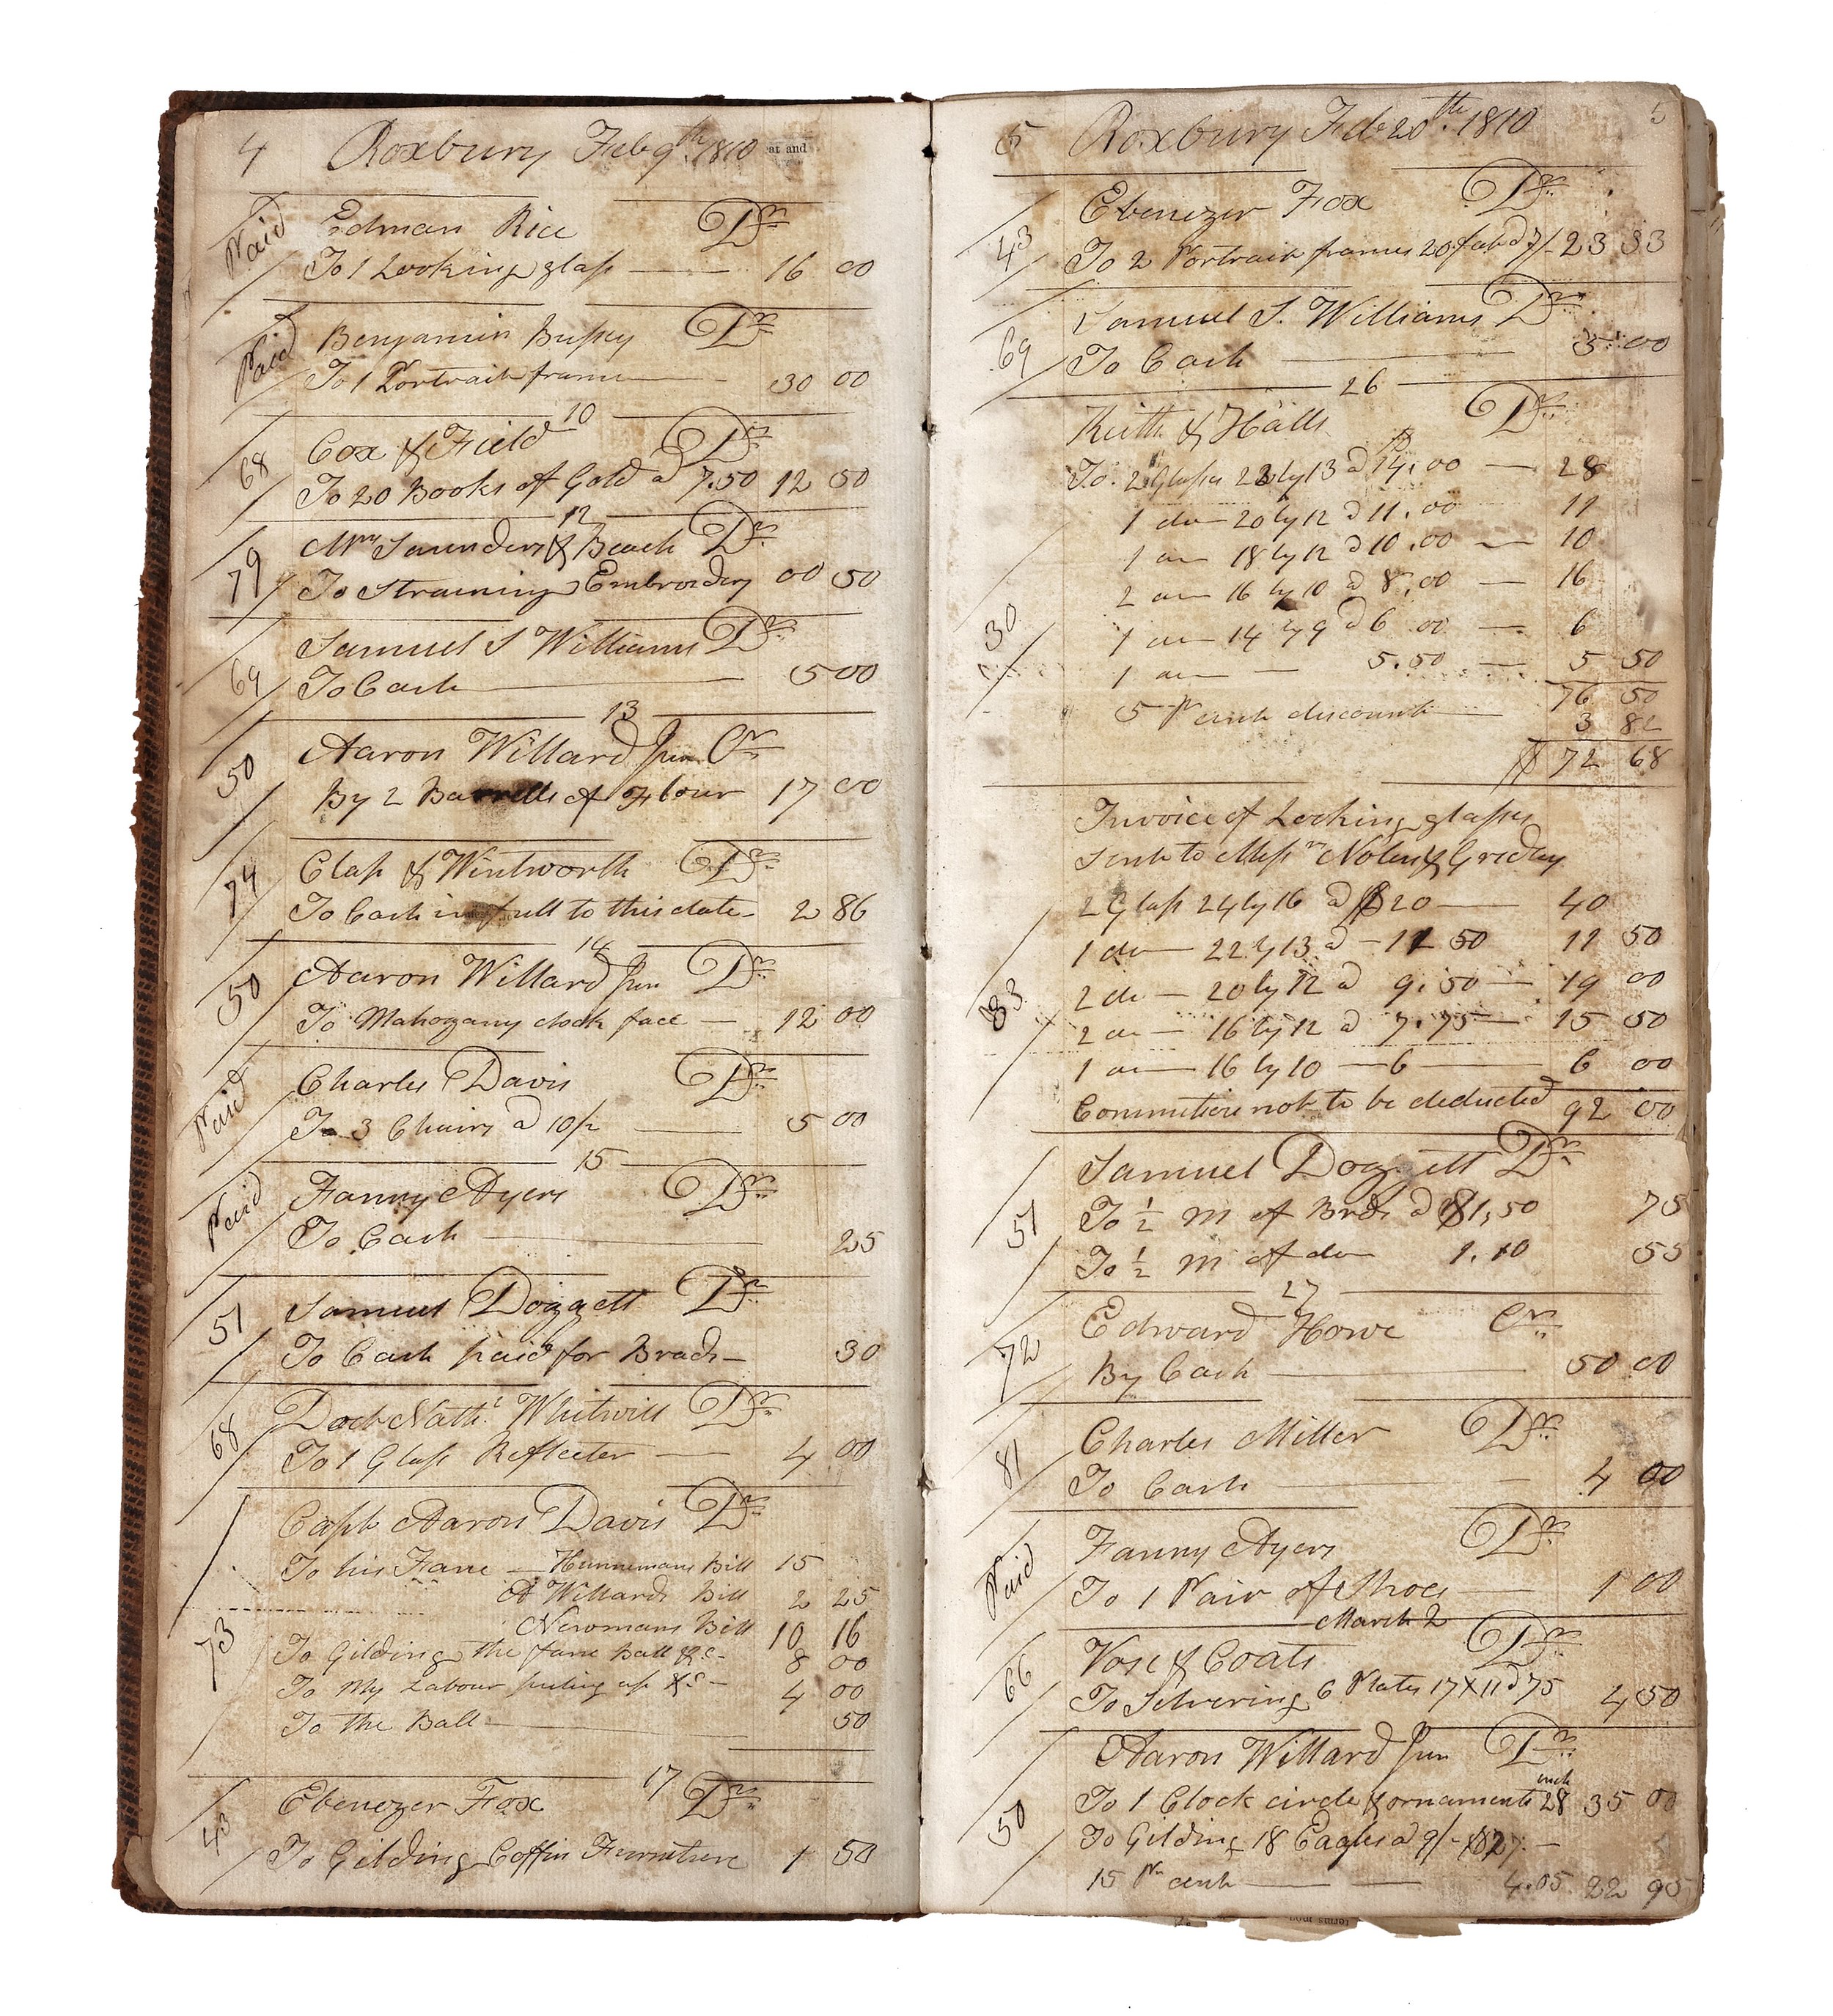 4 Roxbury Feb 9th 1810
at and
Paid Edman Rice Dr
To 1 Looking glass 16 00
Paid Benjamin Bussey Dr
To 1 Portrait frame 30 00
10
68 Cox & Field Dr
To 20 Books of Gold a 7.50 12 50
12
79 Mrs Saunders & Beach Dr
To Straining Embroidery 00 50
69 Samuel S Williams Dr
To Cash 5 00
13
50 Aaron Willard Jun Cr
By 2 Barrells of Flour 17 00
74 Clap & Wentworth Dr
To Cash in full to this date 2 86
14
50 Aaron Willard Jun Dr
To Mahogany clock face 12 00
Paid Charles Davis Dr
To 3 Chairs a 10/ 5 00
15
Paid Fanny Ayers Dr
To Cash 25
51 Samuel Doggett Dr
To Cash paid for Brads 30
68 Doct Nathl Whitwill Dr
To 1 Glass Reflecter 4 00
73 Capt Aaron Davis Dr
To his Fane Hunnemans Bill 15
A Willards Bill 2 25
Newmans Bill 10 16
To Gilding the fane Ball &c 8 00
To My Labour puting up &c 4 00
To the Ball 50
17
43 Ebenezer Fox Dr
To Gilding Coffin Furniture 1 50
5 Roxbury Feb 20th 1810 5
43 Ebenezer Fox Dr
To 2 Portrait frames 20 7/ 23 33
69 Samuel S. Williams Dr
To Cash 5 00
26
30 Keith & Halls Dr
To 2 Glasses 23 by 13 a 14.00 28
1 do 20 by 12 a 11.00 11
1 do 18 by 12 a 10.00 10
2 do 16 by 10 a 8.00 16
1 do 14 by 9 a 6 00 6
1 do 5.50 5 50
76 50
5 Pr cent discount 3 82
$ 72 68
83 Invoice of Looking glasses
Sent to Messrs Nolen & Gridley
2 Glass 24 by 16 a $20 40
1 do 22 by 13 a 11 50 11 50
2 do 20 by 12 a 9.50 19 00
2 do 16 by 12 a 7.75 15 50
1 do 16 by 10 6 6 00
Commition not to be deducted 92 00
51 Samuel Doggett Dr
To ½ M of Brds a $1,50 75
To ½ M of do 1.10 55
27
72 Edward Howe Cr
By Cash 50 00
81 Charles Miller Dr
To Cash 4 00
Paid Fanny Ayers Dr
To 1 Pair of Shoes 1 00
March 2
66 Vose & Coats Dr
To Silvering 6 Plates 17 x 11 a 75 4 50
50 Aaron Willard Jun Dr
To 1 Clock circle & ornaments 28 inch 35 00
To Gilding 18 Eagles a 9/ $27
15 Pr cent 4.05 22 95